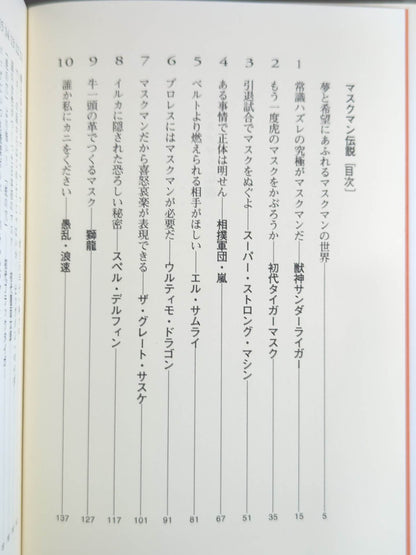 マスクマン伝説［目次］
夢と希望にあふれるマスクマンの世界 5
1 常識ハズレの究極がマスクマンだ 獣神サンダーライガー 15
2 もう一度虎のマスクをかぶろうか 初代タイガーマスク 35
3 引退試合でマスクをぬぐよ スーパー・ストロング・マシン 51
4 ある事情で正体は明せん 相撲軍団・嵐 67
5 ベルトより燃えられる相手がほしい エル・サムライ 81
6 プロレスにはマスクマンが必要だ ウルティモ・ドラゴン 91
7 マスクマンだから喜怒哀楽が表現できる ザ・グレート・サスケ 101
8 イルカに隠された恐ろしい秘密 スペル・デルフィン 117
9 牛一頭の革でつくるマスク 獅龍 127
10 誰か私にカニをください 愚乱・浪速 137